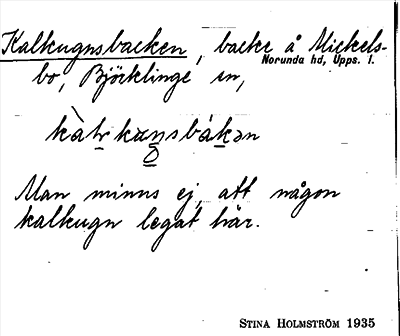 Kalkugnsbacken, backe å Mickels-
Norunda hd, Upps. l.
bo, Björklinge sn,
Man minns ej, att någon
kalkugn legat här.
STINA HOLMSTRÖM 1935